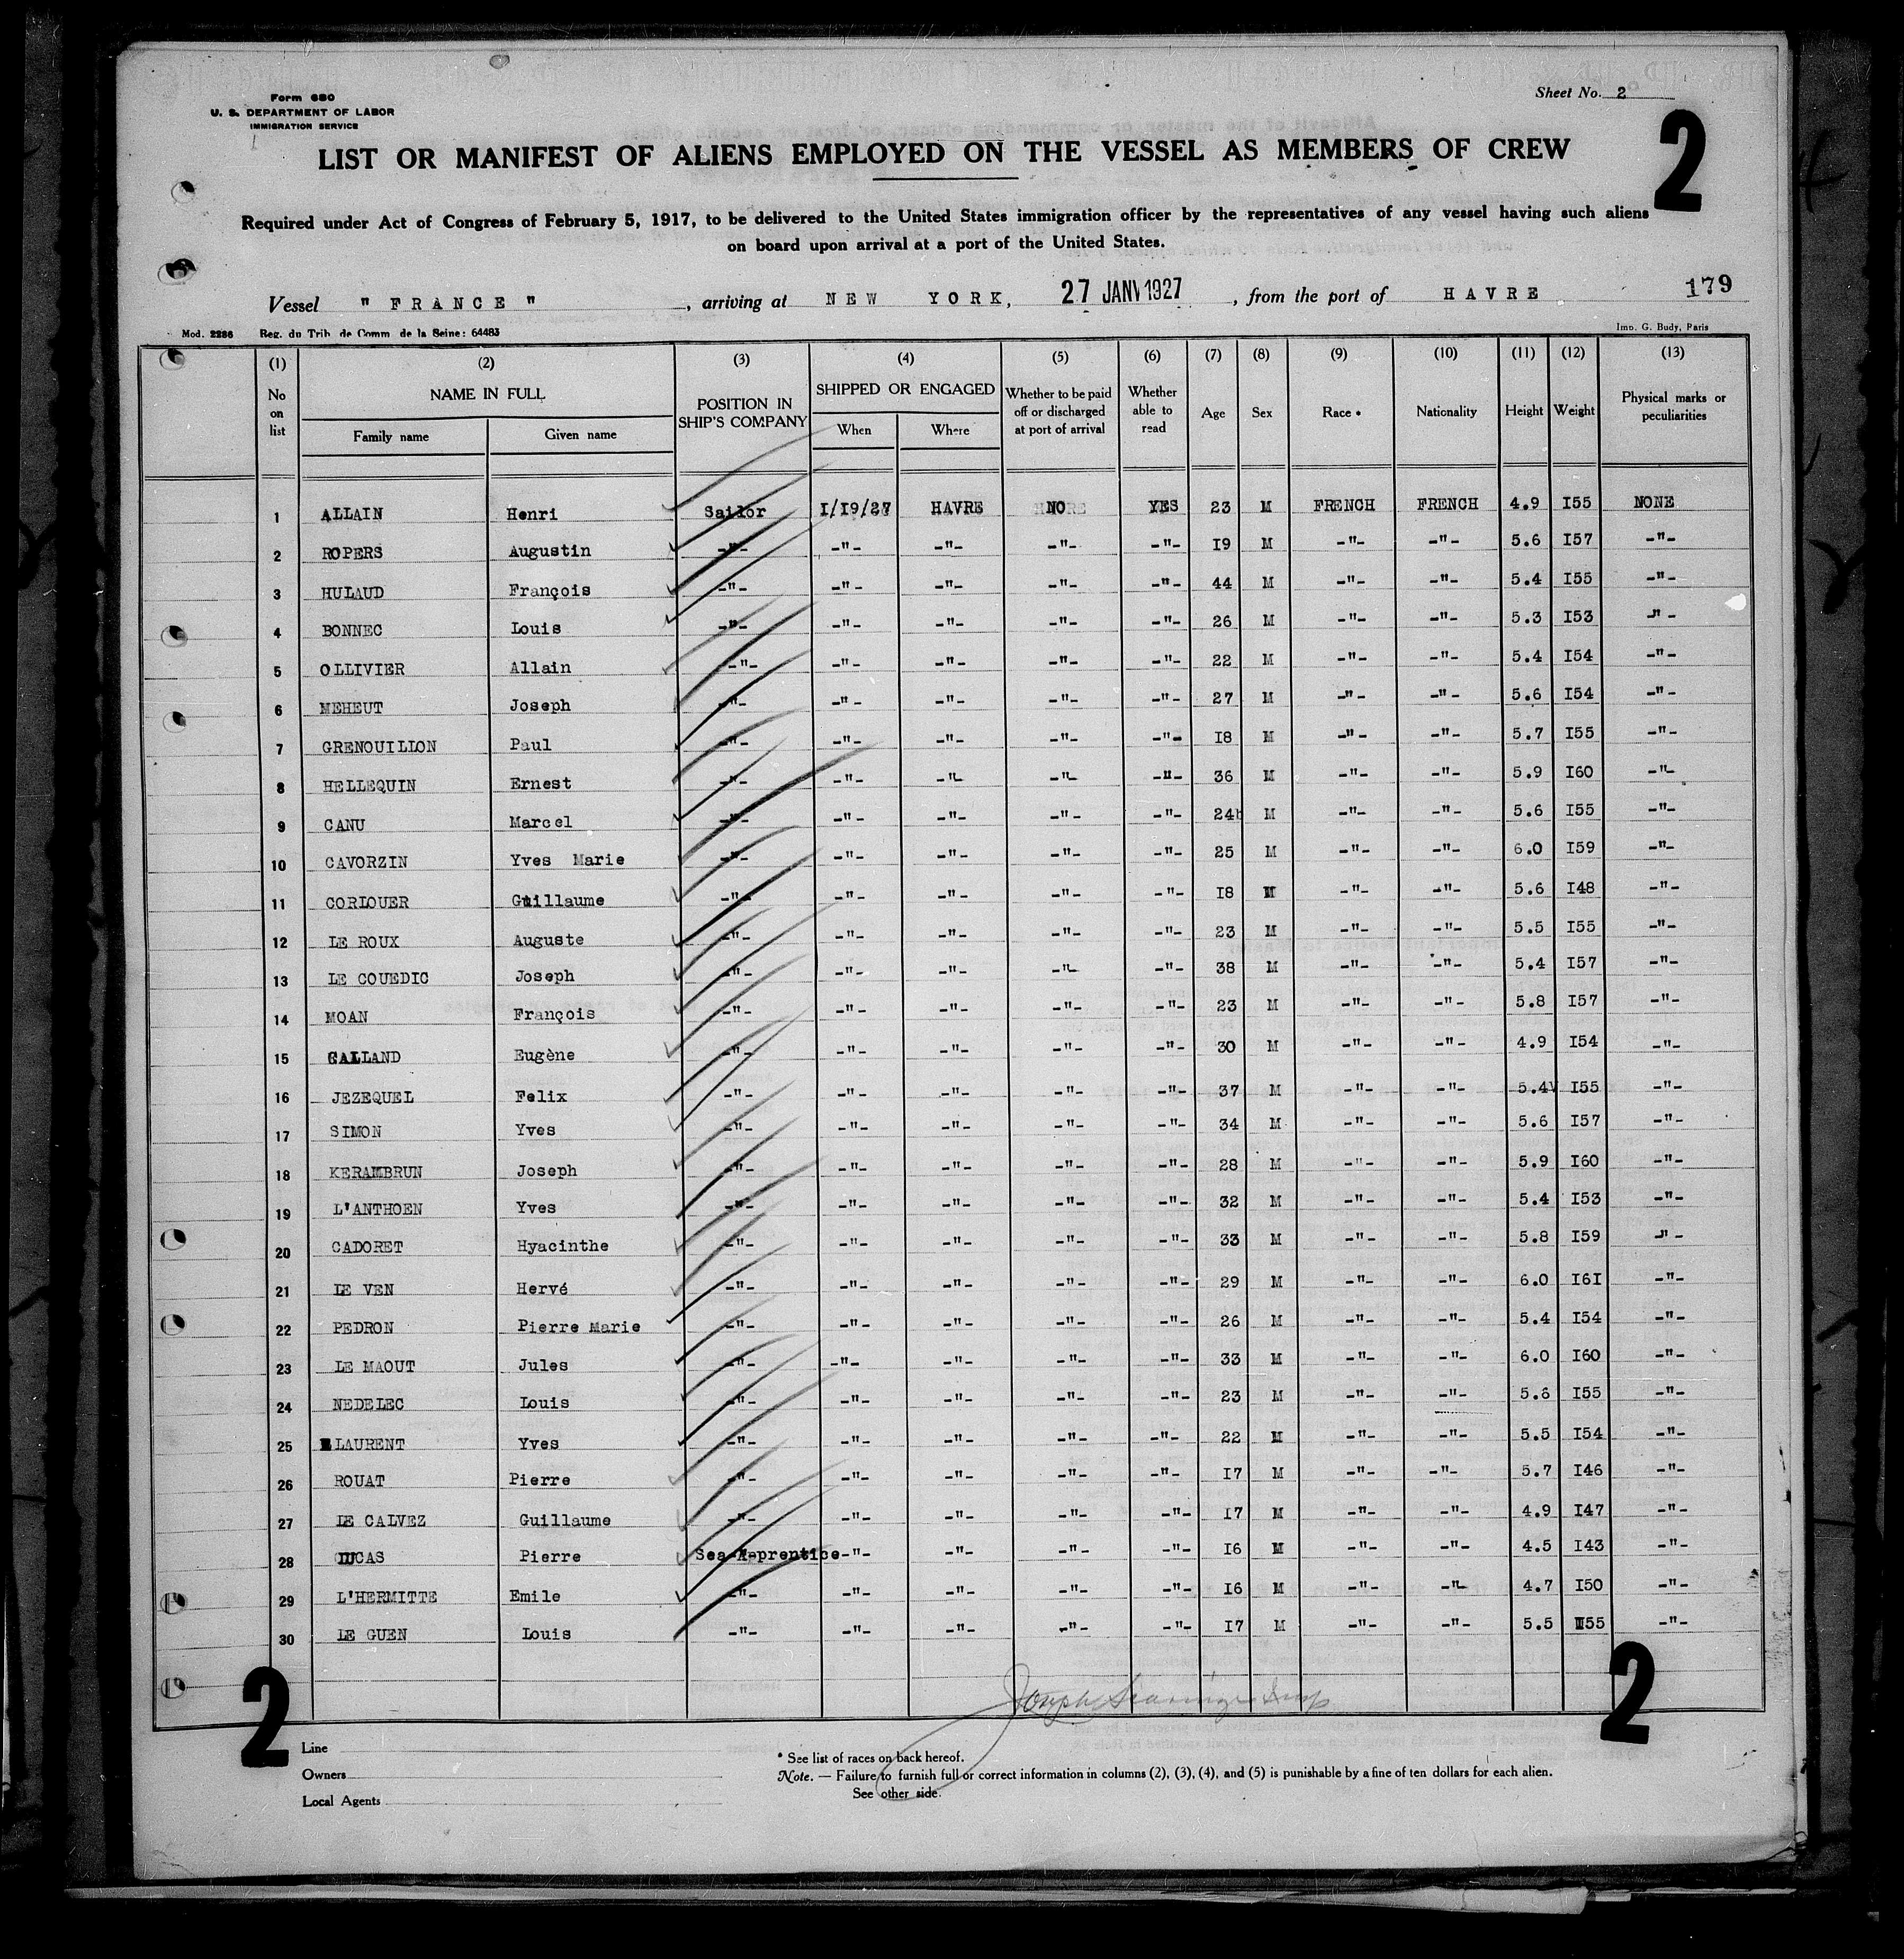 Form 680
U. S. DEPARTMENT OF LABOR
IMMIGRATION SERVICE
Sheet No. 2
2
LIST OR MANIFEST OF ALIENS EMPLOYED ON THE VESSEL AS MEMBERS OF CREW
Required under Act of Congress of February 5, 1917, to be delivered to the United States immigration officer by the representatives of any vessel having such aliens
on board upon arrival at a port of the United States.
Vessel " FRANCE ", arriving at NEW YORK, 27 JANV 1927, from the port of HAVRE 179
Mod. 2286 Reg. du Trib. de Comm. de la Seine: 64483 Imp. G. Budy, Paris
(1) (2) (3) (4) (5) (6) (7) (8) (9) (10) (11) (12) (13)
No on list NAME IN FULL Family name Given name POSITION IN SHIP'S COMPANY SHIPPED OR ENGAGED When Where Whether to be paid off or discharged at port of arrival Whether able to read Age Sex Race * Nationality Height Weight Physical marks or peculiarities
1 ALLAIN Henri Sailor I/I9/27 HAVRE NO YES 23 M FRENCH FRENCH 4.9 I55 NONE
2 ROPERS Augustin -"- -"- -"- -"- -"- I9 M -"- -"- 5.6 I57 -"-
3 HULAUD François -"- -"- -"- -"- -"- 44 M -"- -"- 5.4 I55 -"-
4 BONNEC Louis -"- -"- -"- -"- -"- 26 M -"- -"- 5.3 I53 -"-
5 OLLIVIER Allain -"- -"- -"- -"- -"- 22 M -"- -"- 5.4 I54 -"-
6 MEHEUT Joseph -"- -"- -"- -"- -"- 27 M -"- -"- 5.6 I54 -"-
7 GRENOUILLON Paul -"- -"- -"- -"- -"- I8 M -"- -"- 5.7 I55 -"-
8 HELLEQUIN Ernest -"- -"- -"- -"- -"- 36 M -"- -"- 5.9 I60 -"-
9 CANU Marcel -"- -"- -"- -"- -"- 24 M -"- -"- 5.6 I55 -"-
10 CAVORZIN Yves Marie -"- -"- -"- -"- -"- 25 M -"- -"- 6.0 I59 -"-
11 CORLOUER Guillaume -"- -"- -"- -"- -"- I8 M -"- -"- 5.6 I48 -"-
12 LE ROUX Auguste -"- -"- -"- -"- -"- 23 M -"- -"- 5.5 I55 -"-
13 LE COUEDIC Joseph -"- -"- -"- -"- -"- 38 M -"- -"- 5.4 I57 -"-
14 MOAN François -"- -"- -"- -"- -"- 23 M -"- -"- 5.8 I57 -"-
15 GALLAND Eugène -"- -"- -"- -"- -"- 30 M -"- -"- 4.9 I54 -"-
16 JEZEQUEL Felix -"- -"- -"- -"- -"- 37 M -"- -"- 5.4 I55 -"-
17 SIMON Yves -"- -"- -"- -"- -"- 34 M -"- -"- 5.6 I57 -"-
18 KERAMBRUN Joseph -"- -"- -"- -"- -"- 28 M -"- -"- 5.9 I60 -"-
19 L'ANTHOEN Yves -"- -"- -"- -"- -"- 32 M -"- -"- 5.4 I53 -"-
20 CADORET Hyacinthe -"- -"- -"- -"- -"- 33 M -"- -"- 5.8 I59 -"-
21 LE VEN Hervé -"- -"- -"- -"- -"- 29 M -"- -"- 6.0 I6I -"-
22 PEDRON Pierre Marie -"- -"- -"- -"- -"- 26 M -"- -"- 5.4 I54 -"-
23 LE MAOUT Jules -"- -"- -"- -"- -"- 33 M -"- -"- 6.0 I60 -"-
24 NEDELEC Louis -"- -"- -"- -"- -"- 23 M -"- -"- 5.6 I55 -"-
25 LAURENT Yves -"- -"- -"- -"- -"- 22 M -"- -"- 5.5 I54 -"-
26 ROUAT Pierre -"- -"- -"- -"- -"- I7 M -"- -"- 5.7 I46 -"-
27 LE CALVEZ Guillaume -"- -"- -"- -"- -"- I7 M -"- -"- 4.9 I47 -"-
28 LUCAS Pierre Sea-Apprentice -"- -"- -"- -"- I6 M -"- -"- 4.5 I43 -"-
29 L'HERMITTE Emile -"- -"- -"- -"- -"- I6 M -"- -"- 4.7 I50 -"-
30 LE GUEN Louis -"- -"- -"- -"- -"- I7 M -"- -"- 5.5 I55 -"-
Joseph
2 2
Line
Owners
Local Agents
* See list of races on back hereof.
Note. — Failure to furnish full or correct information in columns (2), (3), (4), and (5) is punishable by a fine of ten dollars for each alien.
See other side.